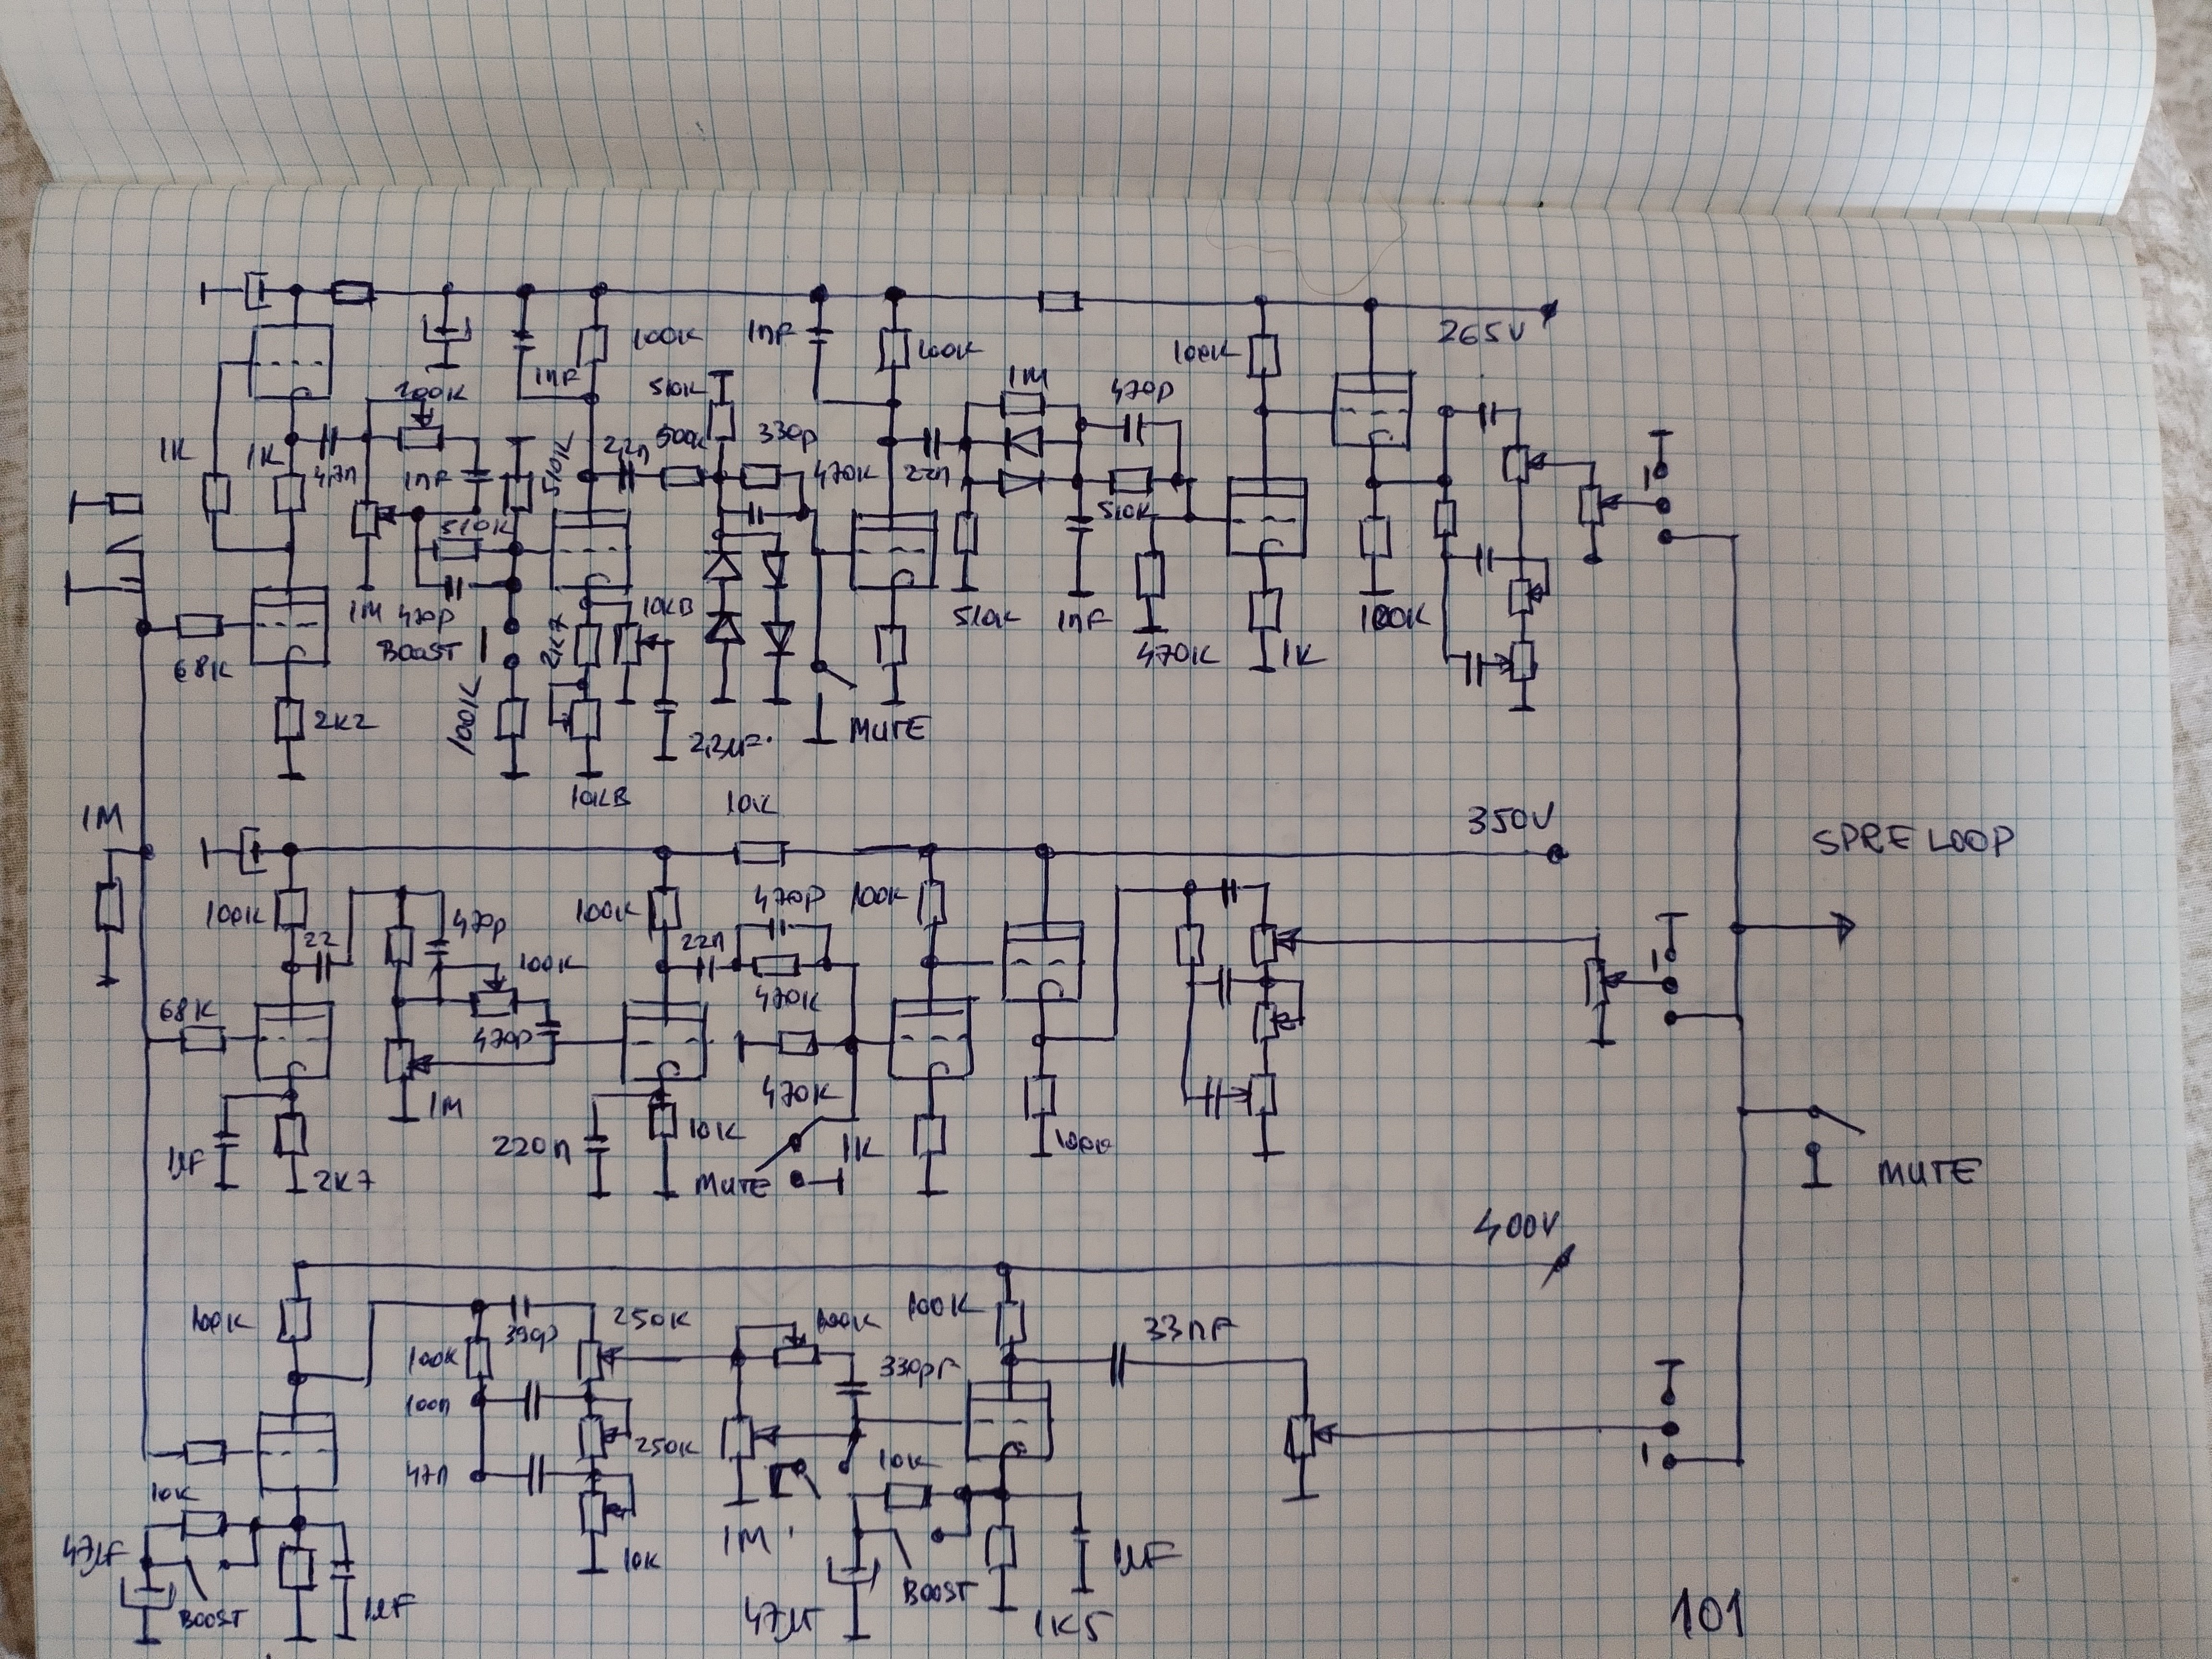 265V
100K
1nF
100K
100K
200K
1nF
510K
1M
470p
1K
1K
47n
1nF
510K
510K
22n
500K
330p
470K
22n
510K
1M
470p
BOOST
2K7
10KB
510K
1nF
470K
1K
100K
68K
2K2
100K
10KB
2,2µF
MUTE
1M
10K
350V
SPRE LOOP
100K
22
470p
100K
100K
22n
470p
470K
100K
68K
470p
1M
470K
1µF
2K7
220n
10K
MUTE
1K
100K
MUTE
400V
100K
390p
250K
100K
100K
33nF
100K
330pF
100n
250K
47n
10K
10K
47µF
BOOST
1µF
10K
1M
47µF
BOOST
1K5
1µF
101